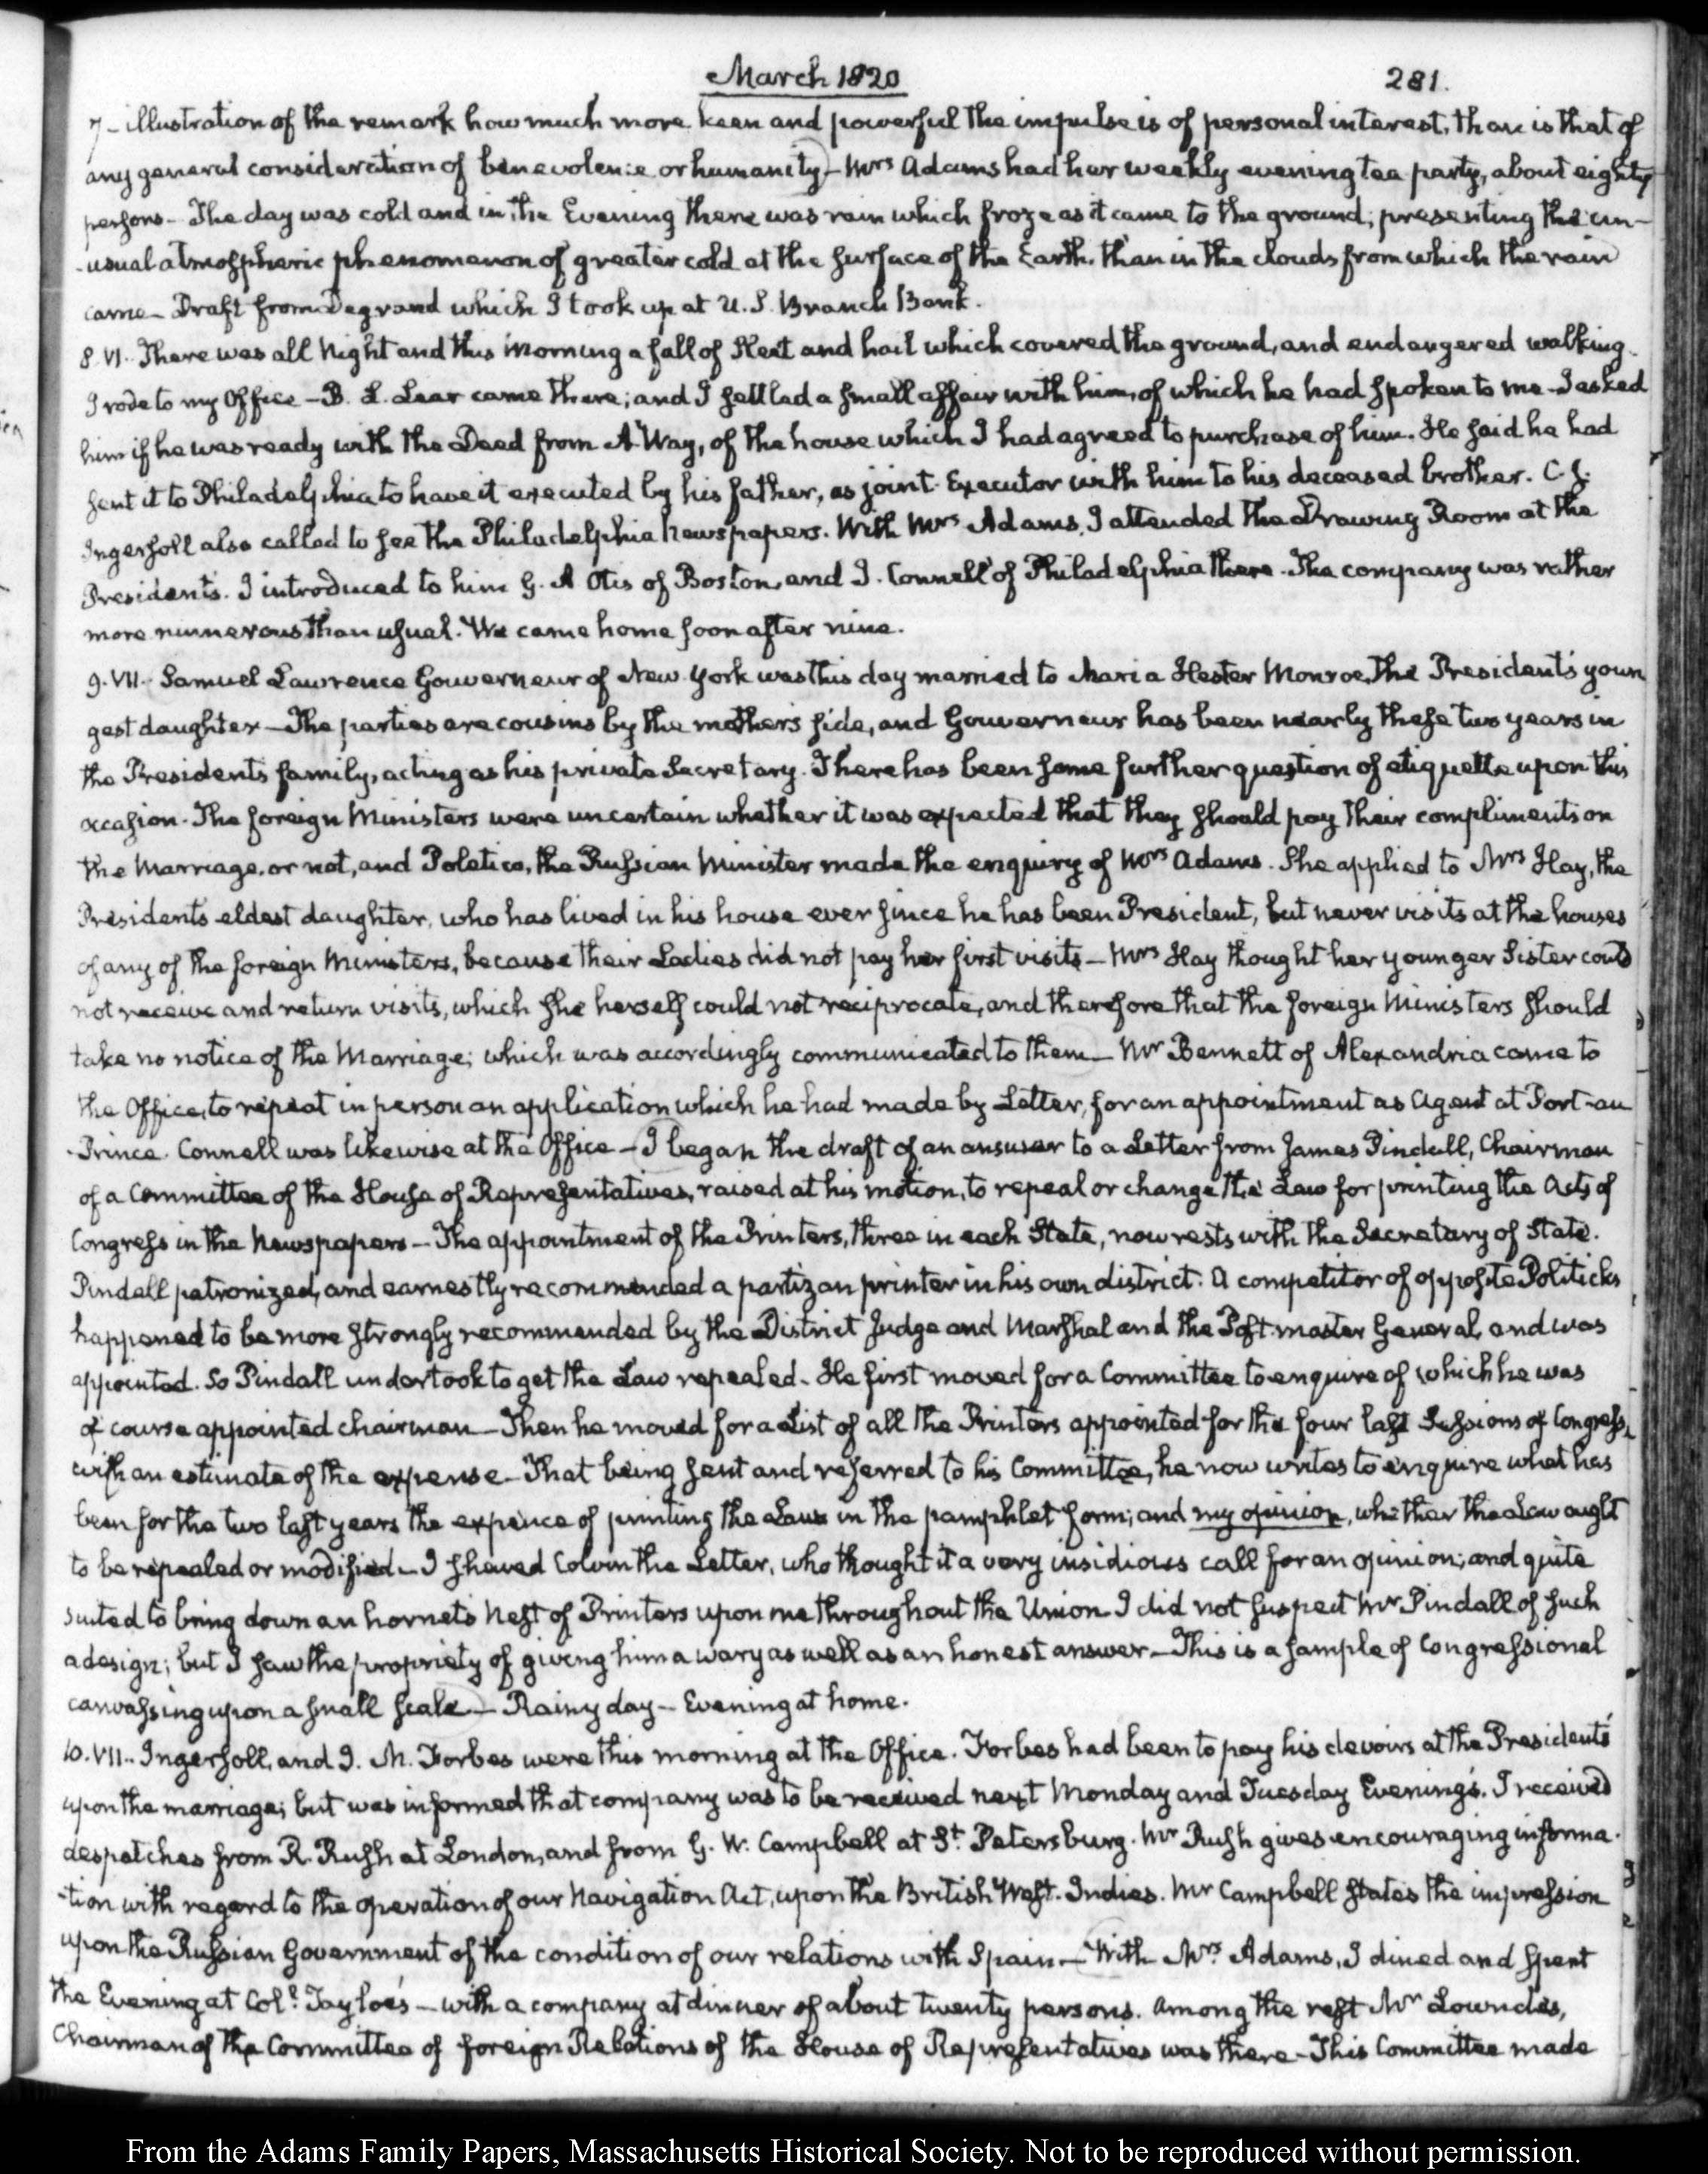 March 1820
281.
7 - illustration of the remark how much more keen and powerful the impulse is of personal interest, than is that of
any general consideration of benevolence or humanity - Mrs Adams had her weekly evening tea party, about eighty
persons - The day was cold and in the Evening there was rain which froze as it came to the ground; presenting the un-
-usual atmospheric phenomenon of greater cold at the surface of the Earth, than in the clouds from which the rain
came - Draft from Degrand which I took up at U.S. Branch Bank.
8. VI. There was all Night and this Morning a fall of Sleet and hail which covered the ground, and endangered walking.
I rode to my Office - B. L. Lear came there; and I settled a small affair with him, of which he had spoken to me - I asked
him if he was ready with the Deed from A Way, of the house which I had agreed to purchase of him. He said he had
sent it to Philadelphia to have it executed by his father, as joint Executor with him to his deceased brother. C. J.
Ingersoll also called to see the Philadelphia Newspapers. With Mrs Adams, I attended the Drawing Room at the
Presidents. I introduced to him G. A Otis of Boston, and J. Connell of Philadelphia there. The company was rather
more numerous than usual. We came home soon after nine.
9. VII. Samuel Lawrence Gouverneur of New York was this day married to Maria Hester Monroe, The President's youn
gest daughter - The parties are cousins by the mother's side, and Gouverneur has been nearly these two years in
the Presidents family, acting as his private Secretary. There has been some further question of etiquette upon this
occasion. The foreign Ministers were uncertain whether it was expected that they should pay their compliments on
the Marriage, or not, and Poletica, the Russian Minister made the enquiry of Mrs Adams. She applied to Mrs Hay, the
Presidents eldest daughter, who has lived in his house ever since he has been President, but never visits at the houses
of any of the foreign Ministers, because their Ladies did not pay her first visits - Mrs Hay thought her younger Sister could
not receive and return visits, which she herself could not reciprocate, and therefore that the foreign Ministers should
take no notice of the Marriage; which was accordingly communicated to them - Mr Bennett of Alexandria came to
the Office, to repeat in person an application which he had made by Letter, for an appointment as Agent at Port-au
-Prince. Connell was likewise at the Office - I began the draft of an answer to a Letter from James Pindall, Chairman
of a Committee of the House of Representatives, raised at his motion, to repeal or change the Law for printing the Acts of
Congress in the Newspapers - The appointment of the Printers, three in each State, now rests with the Secretary of State.
Pindall patronized, and earnestly recommended a partizan printer in his own district. A competitor of opposite Politicks
happened to be more strongly recommended by the District Judge and Marshal and the Postmaster General, and was
appointed. So Pindall undertook to get the Law repealed - He first moved for a Committee to enquire of which he was
of course appointed chairman - Then he moved for a List of all the Printers appointed for the four last Sessions of Congress,
with an estimate of the expense - That being sent and referred to his Committee, he now writes to enquire what has
been for the two last years the expence of printing the Laws in the pamphlet form; and my opinion, whether the Law ought
to be repealed or modified - I shewed Colvin the Letter, who thought it a very insidious call for an opinion; and quite
suited to bring down an hornets Nest of Printers upon me throughout the Union I did not suspect Mr Pindall of such
a design; but I saw the propriety of giving him a wary as well as an honest answer - This is a sample of Congressional
canvassing upon a small scale - Rainy day - Evening at home.
10. VII. Ingersoll, and J. M. Forbes were this morning at the Office. Forbes had been to pay his devoirs at the Presidents
upon the marriage; but was informed that company was to be received next Monday and Tuesday Evenings. I received
despatches from R. Rush at London, and from G. W. Campbell at St. Petersburg. Mr Rush gives encouraging informa-
-tion with regard to the operation of our Navigation Act, upon the British West-Indies. Mr Campbell states the impression
upon the Russian Government of the condition of our relations with Spain - With Mrs. Adams, I dined and spent
the Evening at Coll. Tayloe's - with a company at dinner of about twenty persons. Among the rest Mr Lowndes,
Chairman of the Committee of foreign Relations of the House of Representatives was there - This Committee made
From the Adams Family Papers, Massachusetts Historical Society. Not to be reproduced without permission.